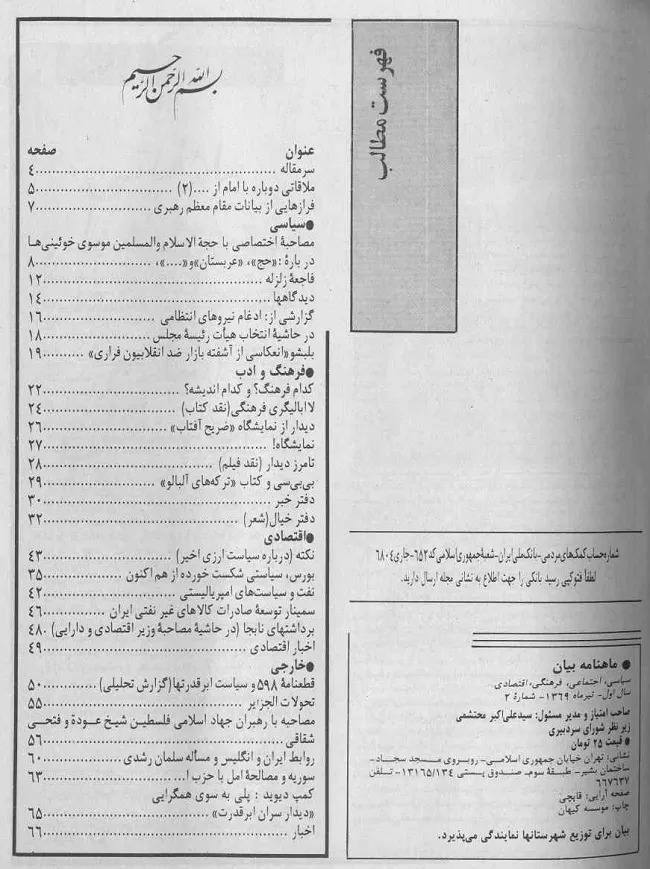 فهرست مطالب
بسم الله الرحمن الرحیم
عنوان صفحه
سرمقاله ........ ۴
ملاقاتی دوباره با امام از ....(۲) ........ ۵
فرازهایی از بیانات مقام معظم رهبری ........ ۷
●سیاسی
مصاحبهٔ اختصاصی با حجة الاسلام والمسلمین موسوی خوئینی‌ها
در بارهٔ :«حج»، «عربستان»و«....»، ........ ۸
فاجعهٔ زلزله ........ ۱۲
دیدگاهها ........ ۱۴
گزارشی از: ادغام نیروهای انتظامی ........ ۱۶
در حاشیهٔ انتخاب هیأت رئیسهٔ مجلس ........ ۱۸
بلبشو«انعکاسی از آشفته بازار ضد انقلابیون فراری» ........ ۱۹
●فرهنگ و ادب
کدام فرهنگ؟ و کدام اندیشه؟ ........ ۲۲
لاابالیگری فرهنگی(نقد کتاب) ........ ۲۴
دیدار از نمایشگاه «ضریح آفتاب» ........ ۲۶
نمایشگاه! ........ ۲۷
تامرز دیدار (نقد فیلم) ........ ۲۸
بی‌بی‌سی و کتاب «ترکه‌های آلبالو» ........ ۲۹
دفتر خبر ........ ۳۰
دفتر خیال(شعر) ........ ۳۲
●اقتصادی
نکته (درباره سیاست ارزی اخیر) ........ ۴۳
بورس، سیاستی شکست خورده از هم اکنون ........ ۳۵
نفت و سیاست‌های امپریالیستی ........ ۴۲
سمینار توسعهٔ صادرات کالاهای غیر نفتی ایران ........ ۴۶
برداشتهای نابجا (در حاشیهٔ مصاحبهٔ وزیر اقتصادی و دارایی) ۴۸۰
اخبار اقتصادی ........ ۴۹
●خارجی
قطعنامهٔ ۵۹۸ و سیاست ابرقدرتها(گزارش تحلیلی) ........ ۵۰
تحولات الجزایر ........ ۵۵
مصاحبه با رهبران جهاد اسلامی فلسطین شیخ عودة و فتحی
شقاقی ........ ۵۶
روابط ایران و انگلیس و مسأله سلمان رشدی ........ ۶۰
سوریه و مصالحهٔ امل با حزب ا... ........ ۶۳
کمپ دیوید : پلی به سوی همگرایی
«دیدار سران ابرقدرت» ........ ۶۵
اخبار ........ ۶۶
شماره حساب کمک‌های مردمی-بانک ملی ایران-شعبهٔ جمهوری اسلامی کد ۶۵۲-جاری ۶۸۰۴
لطفاً فتوکپی رسید بانکی را جهت اطلاع به نشانی مجله ارسال دارید.
● ماهنامه بیان
سیاسی، اجتماعی، فرهنگی، اقتصادی
سال اول- تیرماه ۱۳۶۹- شمارهٔ ۲
صاحب امتیاز و مدیر مسئول: سیدعلی‌اکبر محتشمی
زیر نظر شورای سردبیری
● قیمت ۲۵ تومان
نشانی: تهران خیابان جمهوری اسلامی- روبروی مسجد سجاد-
ساختمان بشیر- طبقهٔ سوم- صندوق پستی ۱۳۱۶۵/۱۳۴- تلفن
۶۶۷۶۳۷
صفحه آرایی: قاپچی
چاپ: موسسه کیهان
بیان برای توزیع شهرستانها نمایندگی می‌پذیرد.